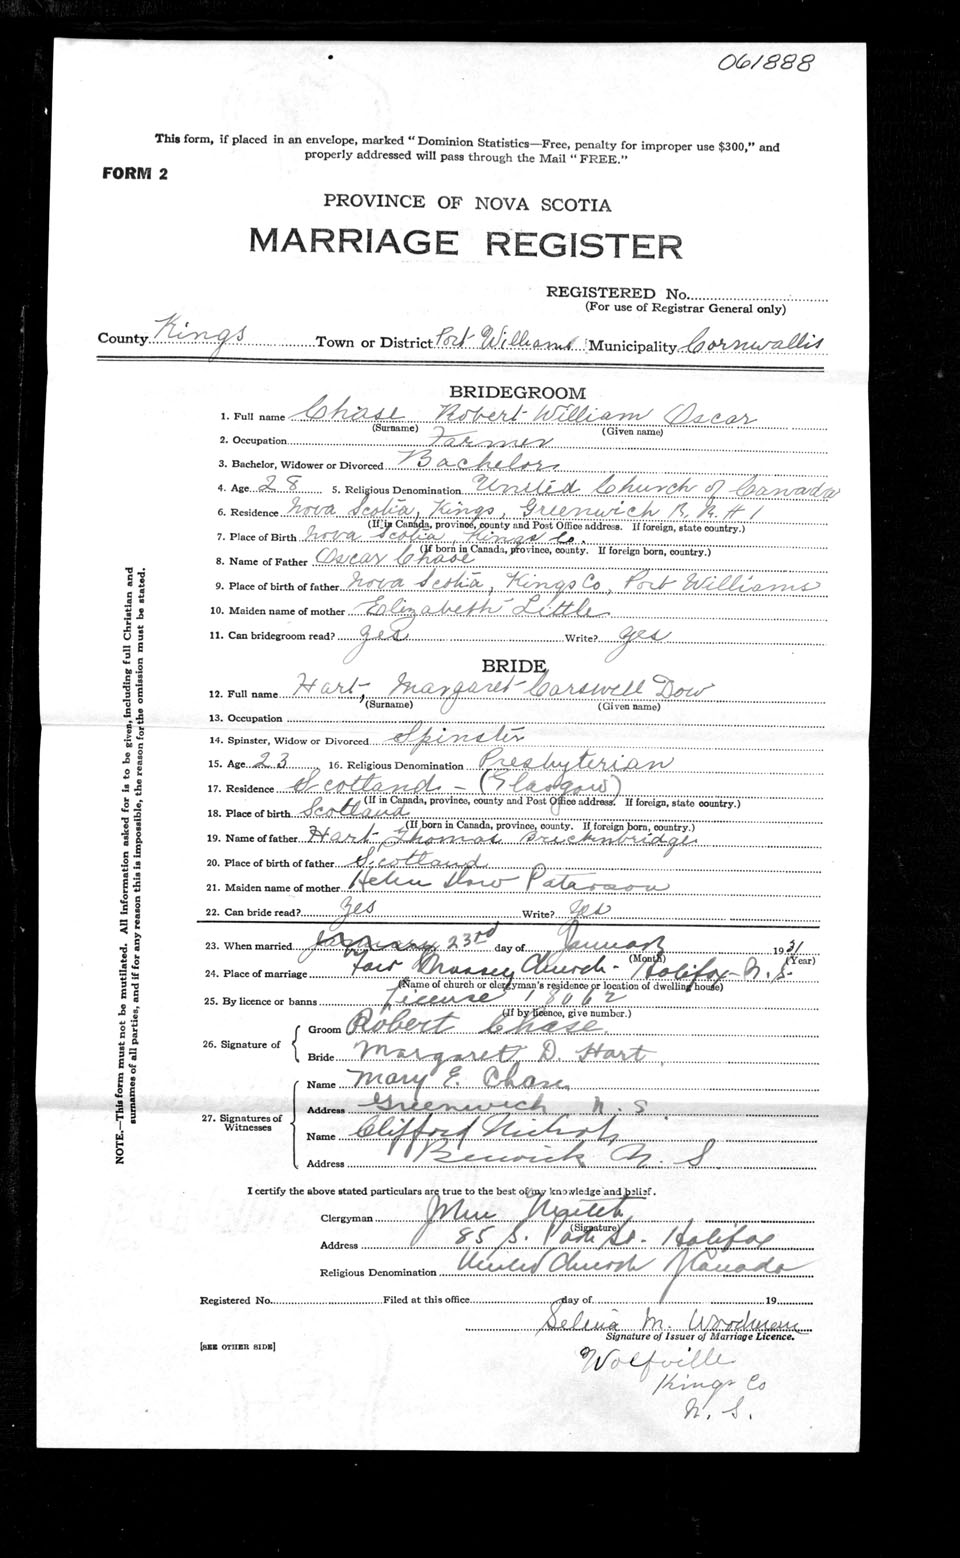 061888
This form, if placed in an envelope, marked "Dominion Statistics—Free, penalty for improper use $300," and
properly addressed will pass through the Mail "FREE."
FORM 2
PROVINCE OF NOVA SCOTIA
MARRIAGE REGISTER
REGISTERED No.
(For use of Registrar General only)
County Kings Town or District Port Williams Municipality Cornwallis
BRIDEGROOM
1. Full name Chase Robert William Oscar
(Surname) (Given name)
2. Occupation Farmer
3. Bachelor, Widower or Divorced Bachelor
4. Age 28 5. Religious Denomination United Church of Canada
6. Residence Nova Scotia, Kings, Greenwich R.R. # 1
(If in Canada, province, county and Post Office address. If foreign, state country.)
7. Place of Birth Nova Scotia, Kings Co.
(If born in Canada, province, county. If foreign born, country.)
8. Name of Father Oscar Chase
9. Place of birth of father Nova Scotia, Kings Co, Port Williams
10. Maiden name of mother Elizabeth Little
11. Can bridegroom read? yes Write? yes
BRIDE
12. Full name Hart, Margaret Carswell Dow
(Surname) (Given name)
13. Occupation
14. Spinster, Widow or Divorced Spinster
15. Age 23 16. Religious Denomination Presbyterian
17. Residence Scotland - (Glasgow)
(If in Canada, province, county and Post Office address. If foreign, state country.)
18. Place of birth Scotland
(If born in Canada, province, county. If foreign born, country.)
19. Name of father Hart, Thomas
20. Place of birth of father Scotland
21. Maiden name of mother Helen Dow Paterson
22. Can bride read? Yes Write? Yes
23. When married 23rd day of January 1931
(Month) (Year)
24. Place of marriage Fort Massey Church - Halifax - N.S.
(Name of church or clergyman's residence or location of dwelling house)
25. By licence or banns License 18662
(If by licence, give number.)
26. Signature of
Groom Robert Chase
Bride Margaret D. Hart
27. Signatures of Witnesses
Name Mary E. Chase
Address Greenwich N.S.
Name Clifford Nichols
Address Berwick N.S
I certify the above stated particulars are true to the best of my knowledge and belief.
Clergyman John
(Signature)
Address 85 S. Park St. Halifax
Religious Denomination United Church of Canada
Registered No. Filed at this office day of 19
Selina M. Woodman
Signature of Issuer of Marriage Licence.
[SEE OTHER SIDE]
Wolfville
Kings Co
N. S.
NOTE.—This form must not be mutilated. All information asked for is to be given, including full Christian and
surnames of all parties, and if for any reason this is impossible, the reason for the omission must be stated.